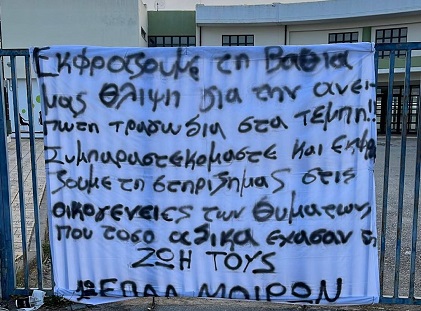 Εκφράζουμε τη Βαθιά
μας θλιψη δια την ανεί-
πωτη τραγωδια στα ΤΕΜΠΗ!!
Συμπαραστεκομαστε και εκφρά
ζουμε τη στηριξη μας στις
οικογενειες των θυματων
που τοσο αδικα εχασαν τη
ΖΩΗ ΤΟΥΣ
1ο ΕΠΑΛ ΜΟΙΡΩΝ